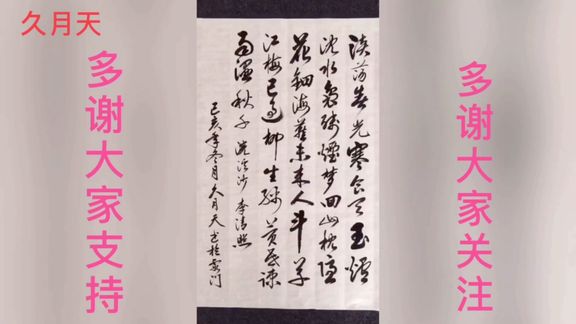 久月天
多谢大家支持
淡荡春光寒食天玉炉
沈水袅残煙梦回山枕隐
花钿海燕未来人斗草
江梅已过柳生绵黄昏疎
雨湿秋千 浣溪沙 李清照
己亥年冬月久月天书於厦门
多谢大家关注